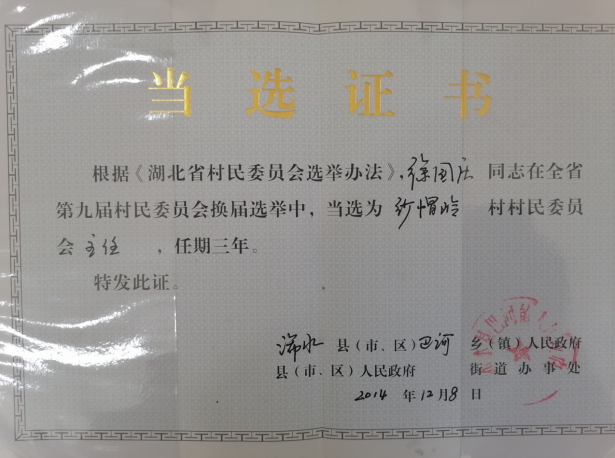 当选证书
根据《湖北省村民委员会选举办法》,徐国庆 同志在全省
第九届村民委员会换届选举中，当选为 纱帽岭 村村民委员
会 主任 ，任期三年。
特发此证。
浠水 县（市、区）巴河 乡（镇）人民政府
县（市、区）人民政府 街道办事处
2014 年 12 月 8 日